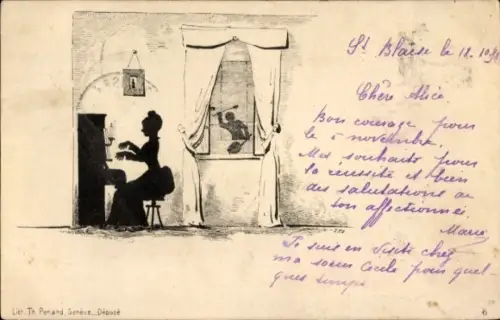 St Blaise le 18. 10.
Chère Alice.
Bon courage pour
le 5 novembre.
Mes souhaits pour
la réussite et bien
des salutations de
ton affectionnée
Marie
Je suis en visite chez
ma soeur Cécile pour quel
ques temps
Lith. Th. Penard, Genève. Déposé
6